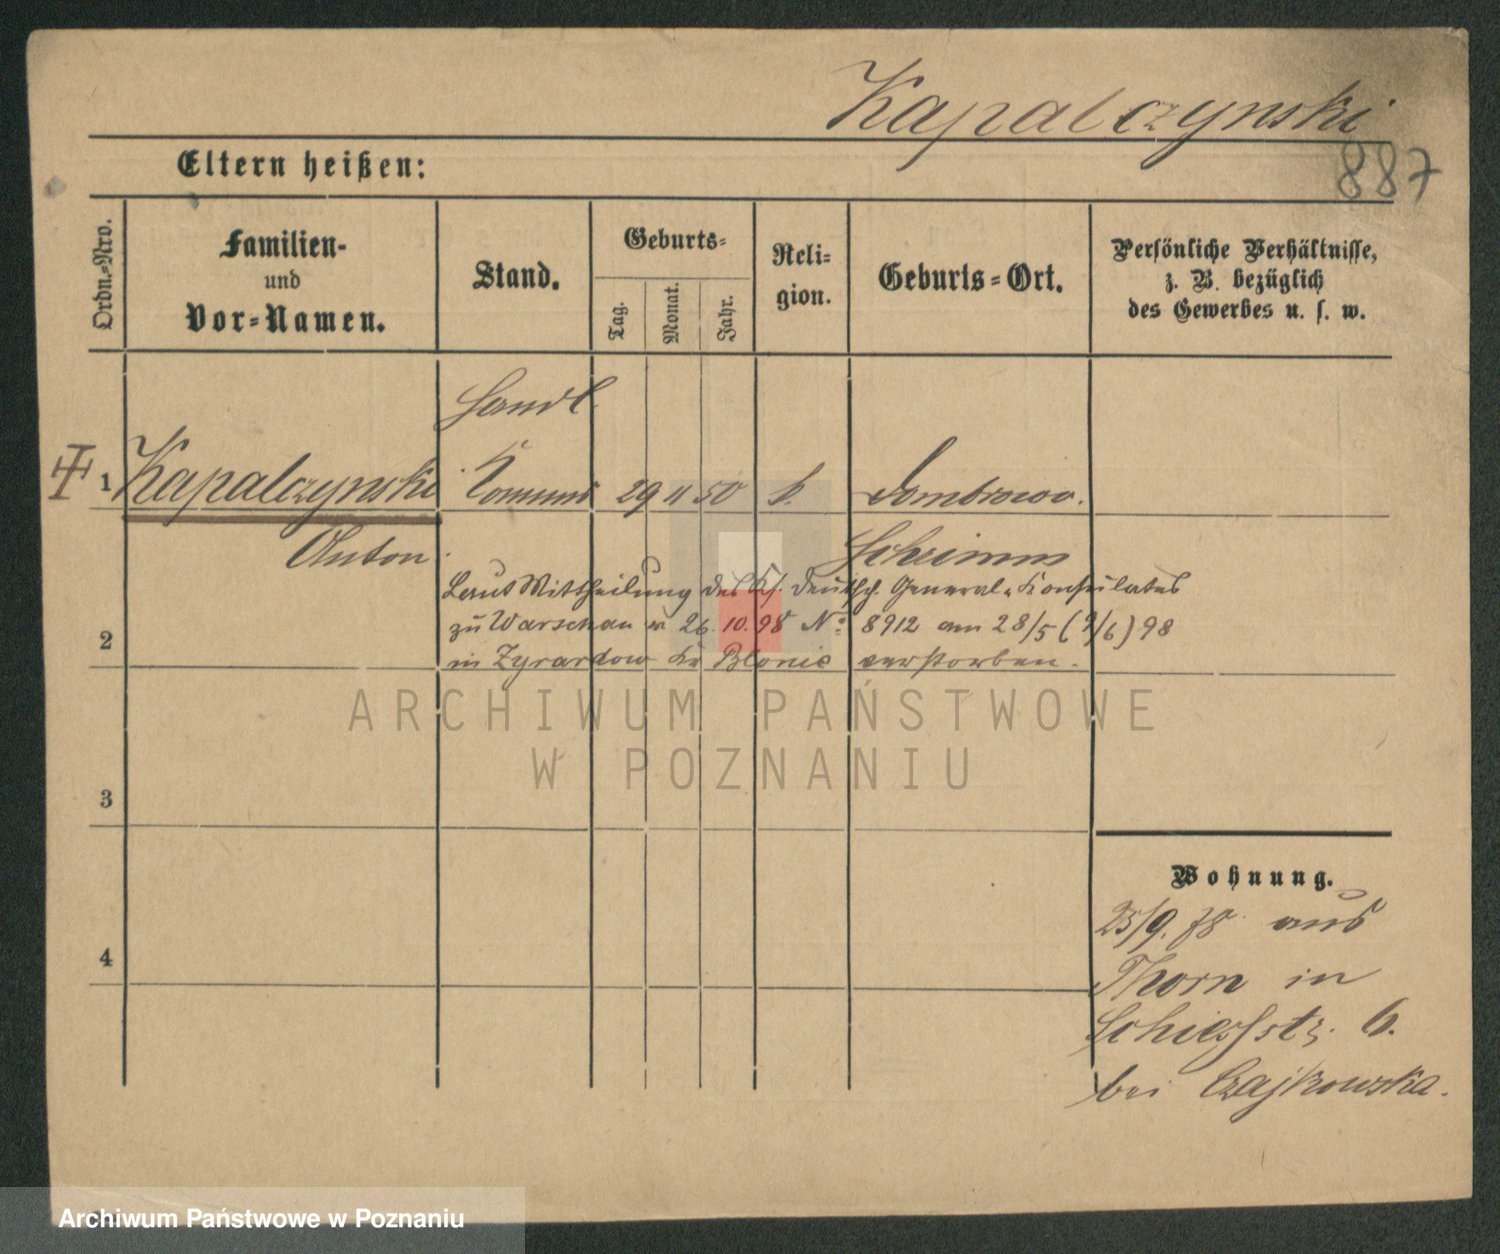 Kapalczynski
887
Eltern heißen:
Ordn.-Nro.
Familien-
und
Vor-Namen.
Stand.
Geburts-
Tag.
Monat.
Jahr.
Reli-
gion.
Geburts-Ort.
Persönliche Verhältnisse,
z. B. bezüglich
des Gewerbes u. s. w.
Handl.
1 Kapalczynski Commis 29 11 50 k. Dombrowo.
Anton Schrimm
Laut Mittheilung des Ks. Deutsch. General-Konsulates
zu Warschau v. 26.10.98 No 8912 am 28/5 (9/6) 98
2 in Zyrardow Kr Blonie verstorben.
ARCHIWUM PAŃSTWOWE
W POZNANIU
3
Wohnung.
25/9. 78 aus
4
Thorn in
Schiesstr. 6.
bei Czajkowska.
Archiwum Państwowe w Poznaniu